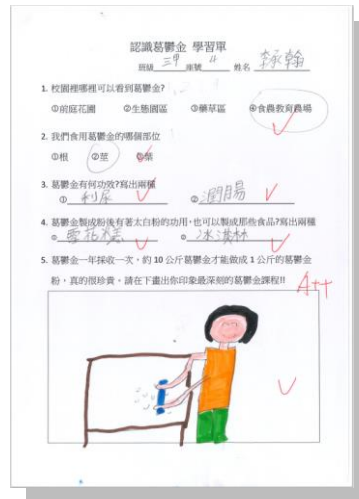 認識葛鬱金 學習單
班級 三甲 座號 4 姓名 翰
1. 校園裡哪裡可以看到葛鬱金?
①前庭花園 ②生態園區 ③藥草區 ④食農教育農場
2. 我們食用葛鬱金的哪個部位
①根 ②莖 ③葉
3. 葛鬱金有何功效?寫出兩種
① 利尿 ② 潤腸
4. 葛鬱金製成粉後有著太白粉的功用,也可以製成那些食品?寫出兩種
① 雪花糕 ② 冰淇淋
5. 葛鬱金一年採收一次,約 10 公斤葛鬱金才能做成 1 公斤的葛鬱金
粉,真的很珍貴。請在下畫出你印象最深刻的葛鬱金課程!!
A++